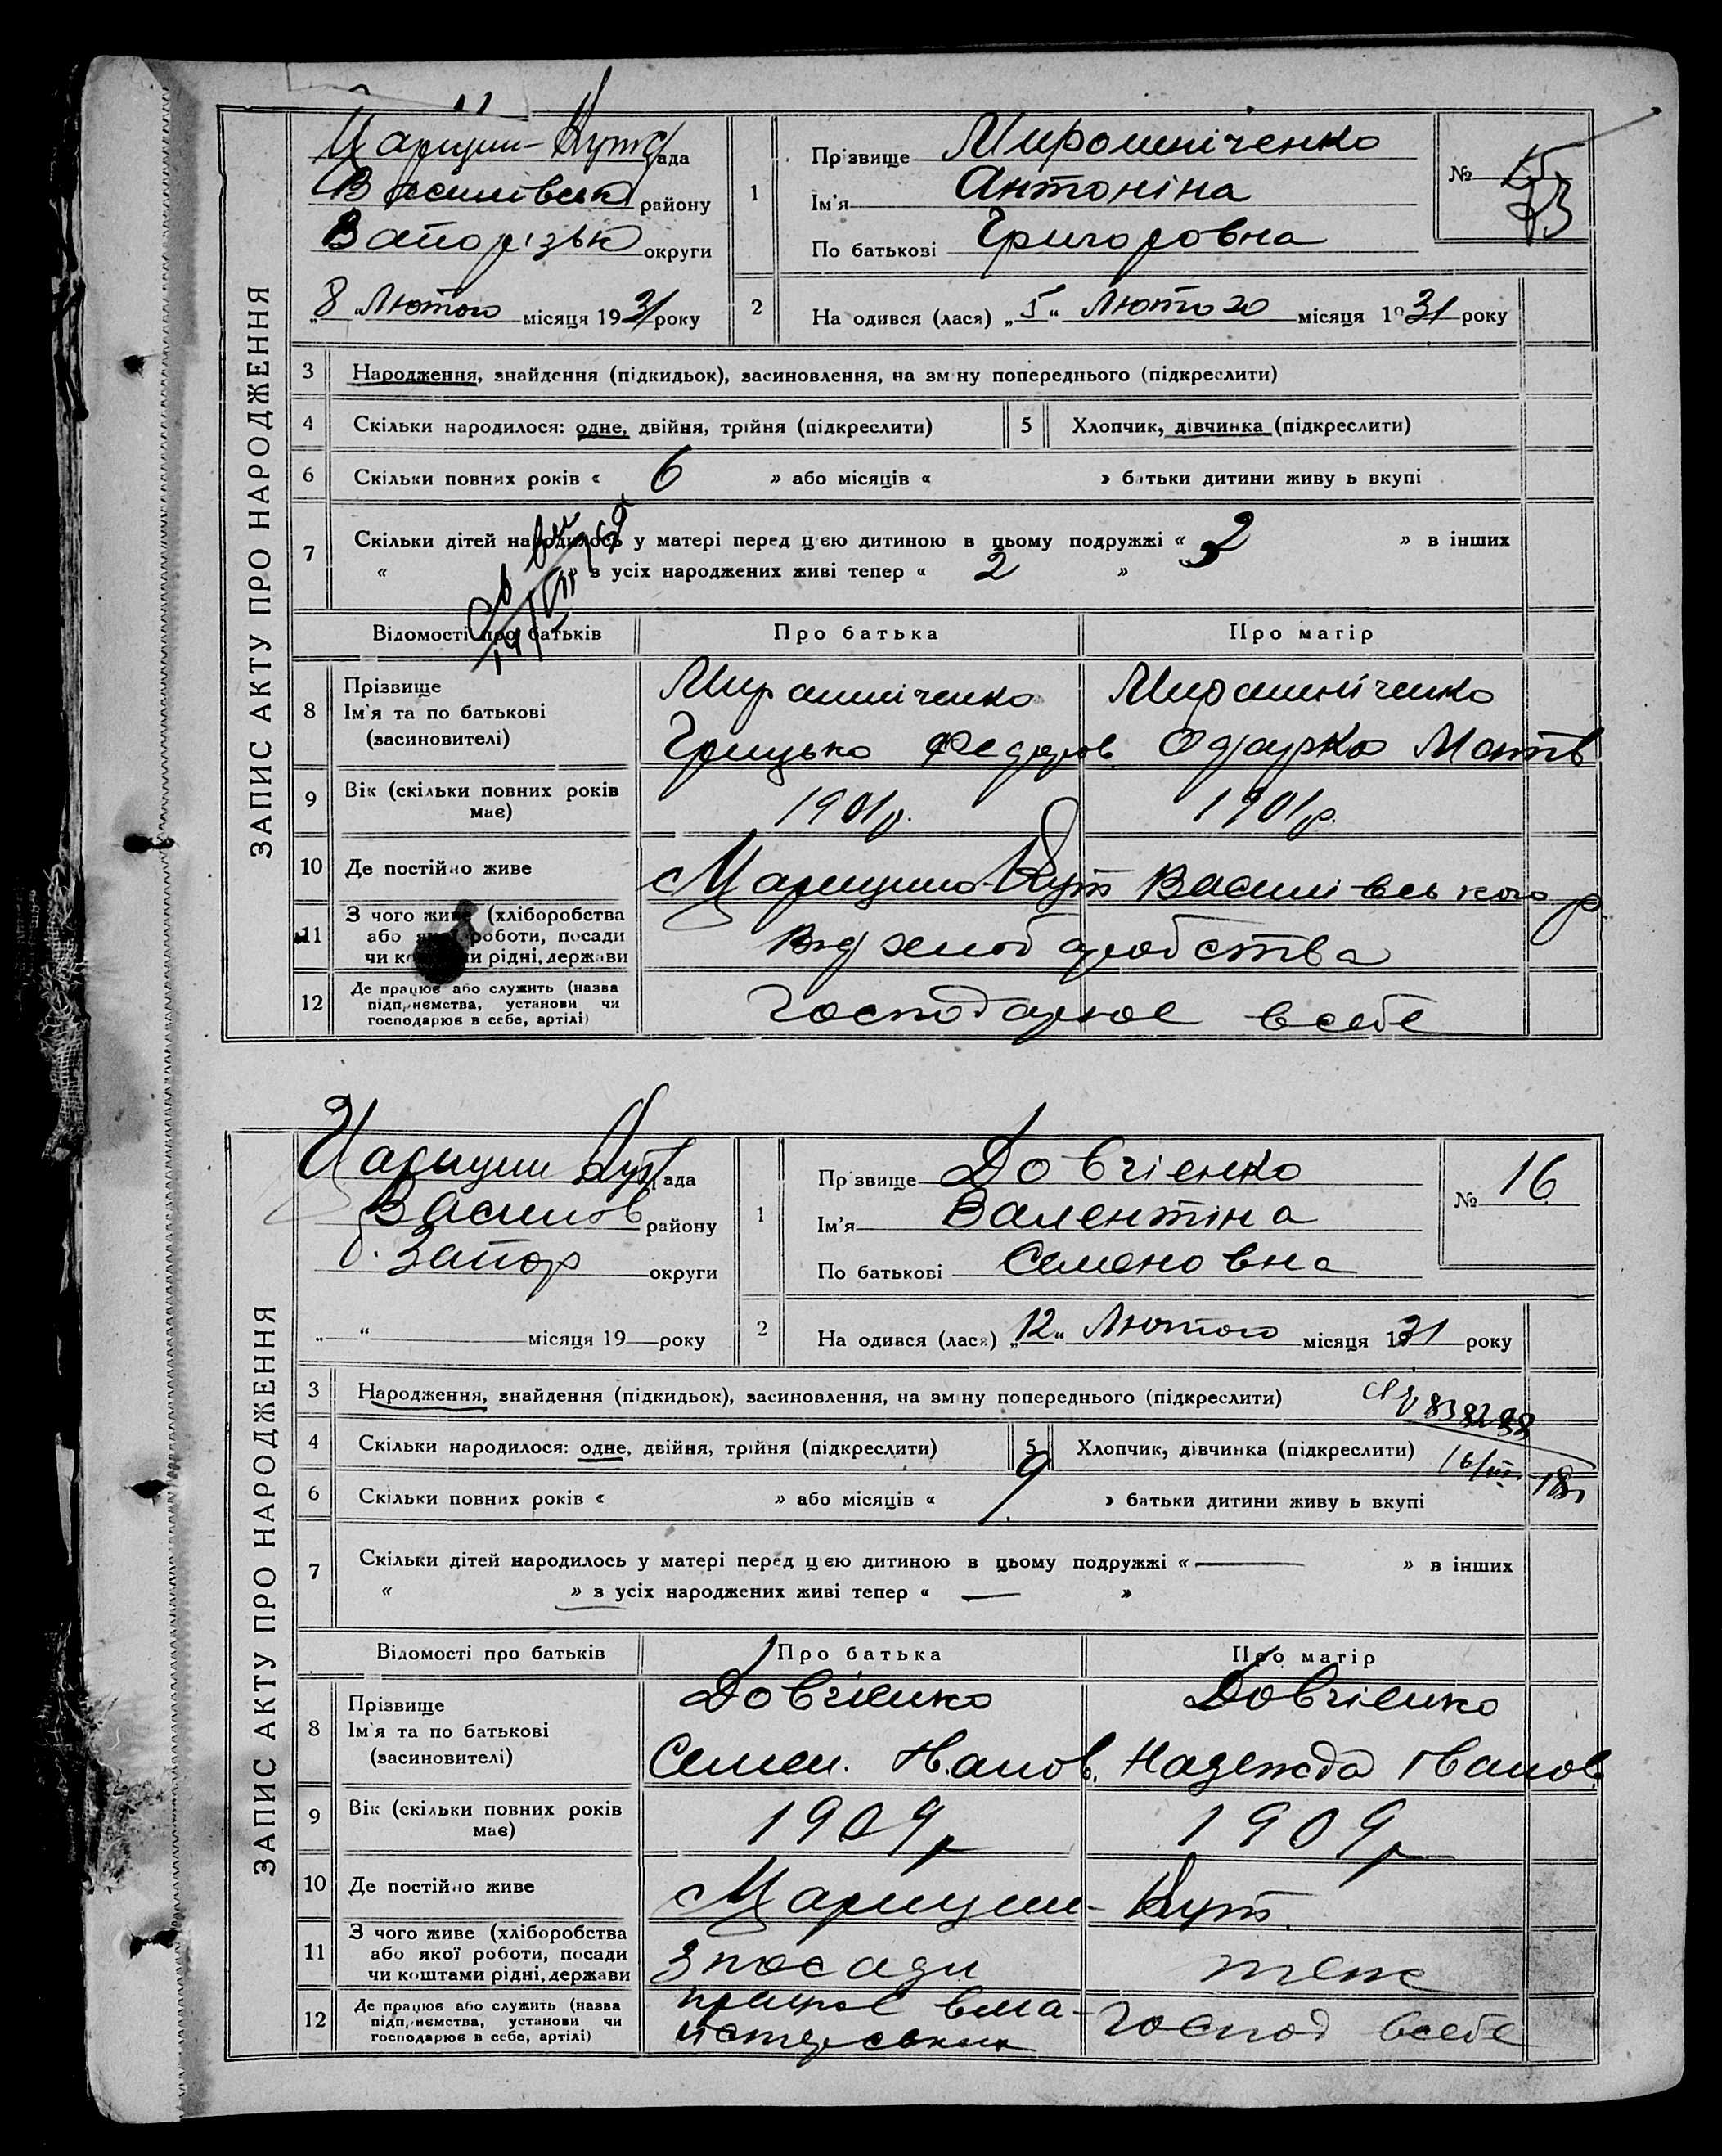 ЗАПИС АКТУ ПРО НАРОДЖЕННЯ
Царицин-Кут рада
Василівськ району
Запорізьк округи
„8“ Лютого місяця 1931 року
1
Прізвище Мирошніченко
Ім'я Антоніна
По батькові Григоровна
№ 15
2 Народився (лася) „5“ Лютого місяця 1931 року
3 Народження, знайдення (підкидьок), засиновлення, на зміну попереднього (підкреслити)
4 Скільки народилося: одне, двійня, трійня (підкреслити) 5 Хлопчик, дівчинка (підкреслити)
6 Скільки повних років « 6 » або місяців « » батьки дитини живуть вкупі
7 Скільки дітей народилось у матері перед цією дитиною в цьому подружжі « 2 » в інших
« » з усіх народжених живі тепер « 2 »
Відомості про батьків Про батька Про матір
8 Прізвище
Ім'я та по батькові
(засиновителі)
Мирошніченко Мирошніченко
Грицько Федоров. Одарка Матв
9 Вік (скільки повних років має)
1901р. 1901р.
10 Де постійно живе
с Царицино-Кут Василівського р.
11 З чого живе (хліборобства
або якої роботи, посади
чи коштами рідні, держави
Від хліборобства
12 Де працює або служить (назва
підприємства, установи чи
господарює в себе, артілі)
Господарює в себе
ЗАПИС АКТУ ПРО НАРОДЖЕННЯ
Царицин Кут рада
Василів району
б. Запор округи
„ “ місяця 19 року
1
Прізвище Довгіенко
Ім'я Валентіна
По батькові Семеновна
№ 16
2 Народився (лася) „12“ Лютого місяця 1931 року
3 Народження, знайдення (підкидьок), засиновлення, на зміну попереднього (підкреслити)
4 Скільки народилося: одне, двійня, трійня (підкреслити) 5 Хлопчик, дівчинка (підкреслити)
6 Скільки повних років « » або місяців « 9 » батьки дитини живуть вкупі
7 Скільки дітей народилось у матері перед цією дитиною в цьому подружжі « — » в інших
« » з усіх народжених живі тепер « — »
Відомості про батьків Про батька Про матір
8 Прізвище
Ім'я та по батькові
(засиновителі)
Довгіенко Довгіенко
Семен. Iванов. Надежда Iванов
9 Вік (скільки повних років має)
1909р 1909р
10 Де постійно живе
с Царицин-Кут.
11 З чого живе (хліборобства
або якої роботи, посади
чи коштами рідні, держави
З посади теж
12 Де працює або служить (назва
підприємства, установи чи
господарює в себе, артілі)
працює в ма-
йстерських Господ в себе